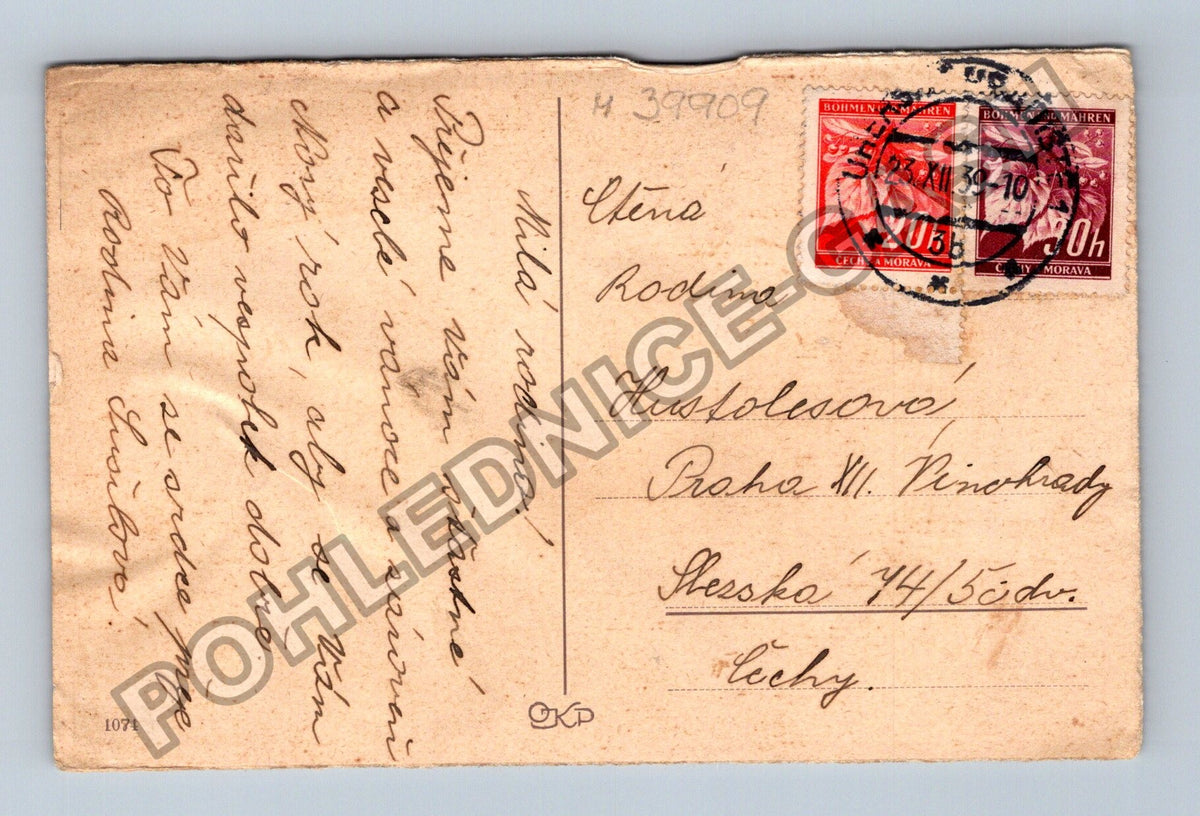 Milá rodino!
Přijeme Vám šťastné
a veselé vanoce a
Nový rok, aby se Vám
dařilo vespolek dobře
To Vám se srdce přeje
Rodina
H 39909
BÖHMEN UND MÄHREN
20h
ČECHY A MORAVA
BÖHMEN UND MÄHREN
30h
ČECHY A MORAVA
23.XII.39-10
3b
Ctěná
Rodina
Hustolesová
Praha XII. Vinohrady
Slezská 74/5
Čechy.
1074
OKP
POHLEDNICE-